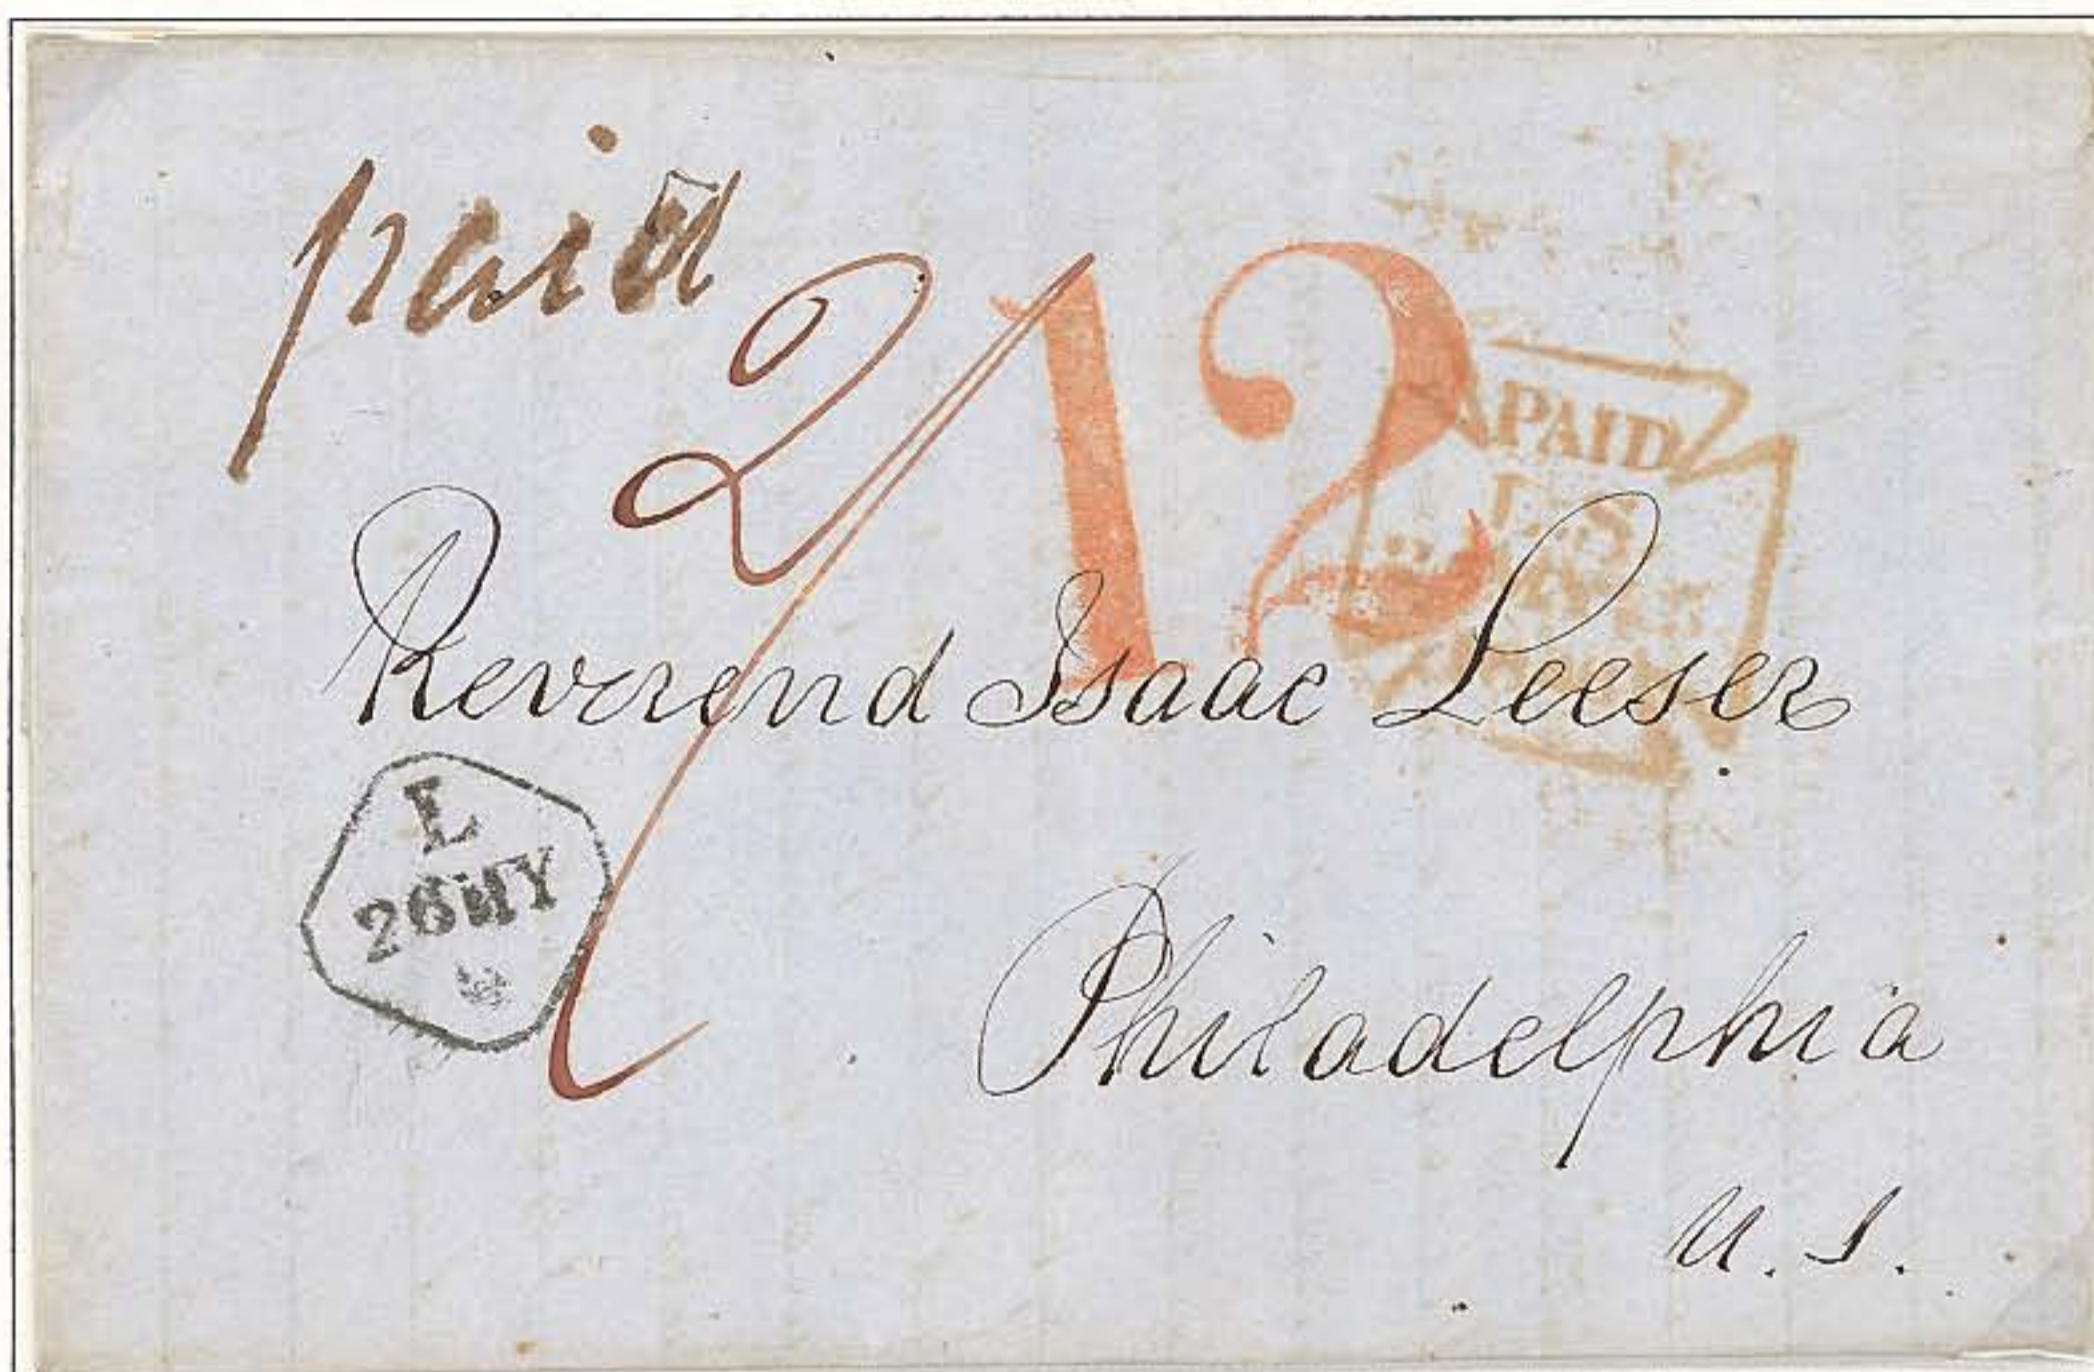 paid
2/
12
PAID
Reverend Isaac Leeser
L
26 MY
Philadelphia
U.S.